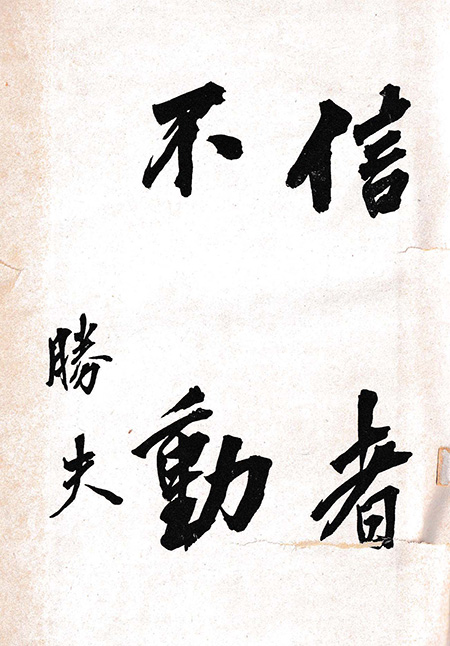 信者
不動
勝夫